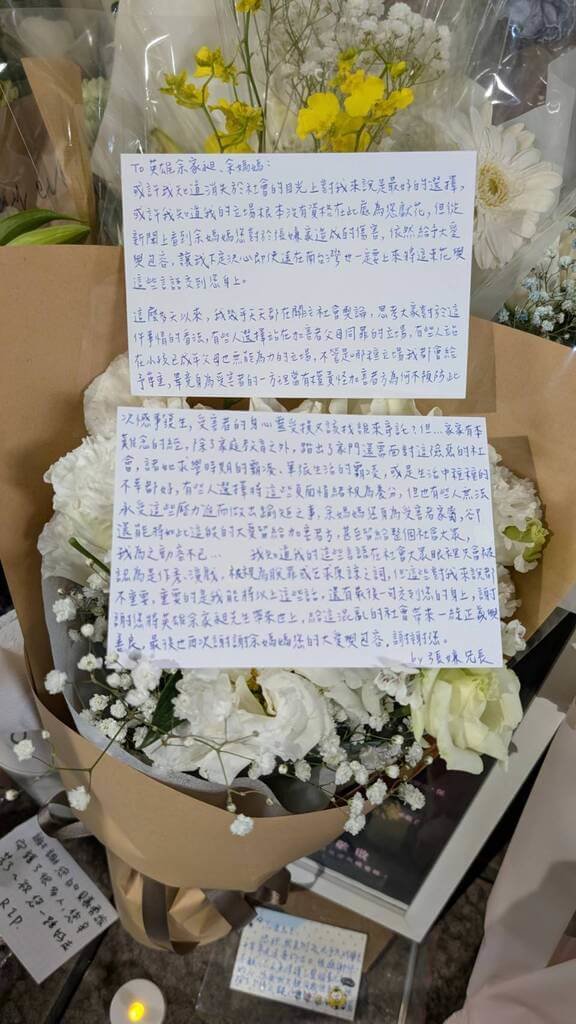 To 英雄余家昶、余媽媽：
或許我知道消失於社會的目光上對我來說是最好的選擇，
或許我知道我的立場根本沒有資格在此處為您獻花，但從
新聞上看到余媽媽您對於張嫌家造成的傷害，依然給予大愛
與包容，讓我下定決心即便遠在南台灣也一定要上來將這束花與
這些言語交到您身上。
這麼多天以來，我幾乎天天都在關注社會輿論，思考大家對於這
件事情的看法，有些人選擇站在加害者父母同罪的立場，有些人站
在小孩已成年父母也無能為力的立場，不管是哪種立場我都會給
予尊重，畢竟身為受害者的一方理當有權責怪加害者方為何不預防此
次憾事發生，受害者的身心靈受損又該找誰來寄託？但...家家有本
難念的經，除了家庭教育之外，踏出了家門還要面對這險惡的社
會，諸如求學時期的霸凌、軍旅生活的霸凌，或是生活中種種的
不幸都好，有些人選擇將這些負面情緒視為養分，但也有些人無法
承受這些壓力進而做出踰矩之事，余媽媽您身為受害者家屬，卻
還能將如此這般的大愛留給加害者方，甚至留給整個社會大眾，
我為之動容不已... 我知道我的這些言語在社會大眾眼裡只會被
認為是作秀、演戲，被視為脫罪或乞求原諒之詞，但這些對我來說都
不重要，重要的是我能將以上這些話，還有最後一句交到您的身上，謝
謝您將英雄余家昶先生帶來世上，給這混亂的社會帶來一絲正義與
善良，最後也再次謝謝余媽媽您的大愛與包容，謝謝您。
by 張嫌兄長
謝謝您的見義勇為
守護了很多人，您辛
苦了～祝您一路好走
R.I.P.